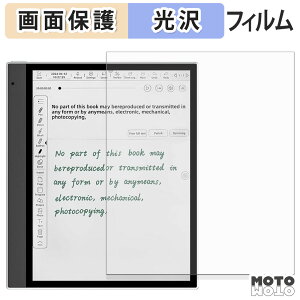 画面保護 光沢 フィルム
No part of this book may bereproduced or transmitted in
any form or by anymeans, electronic, mechanical,
photocopying,
No part of this book may
bereproduced or transmitted in
any form or by anymeans,
electronic, mechanical,
photocopying.
MOTO
MOTO